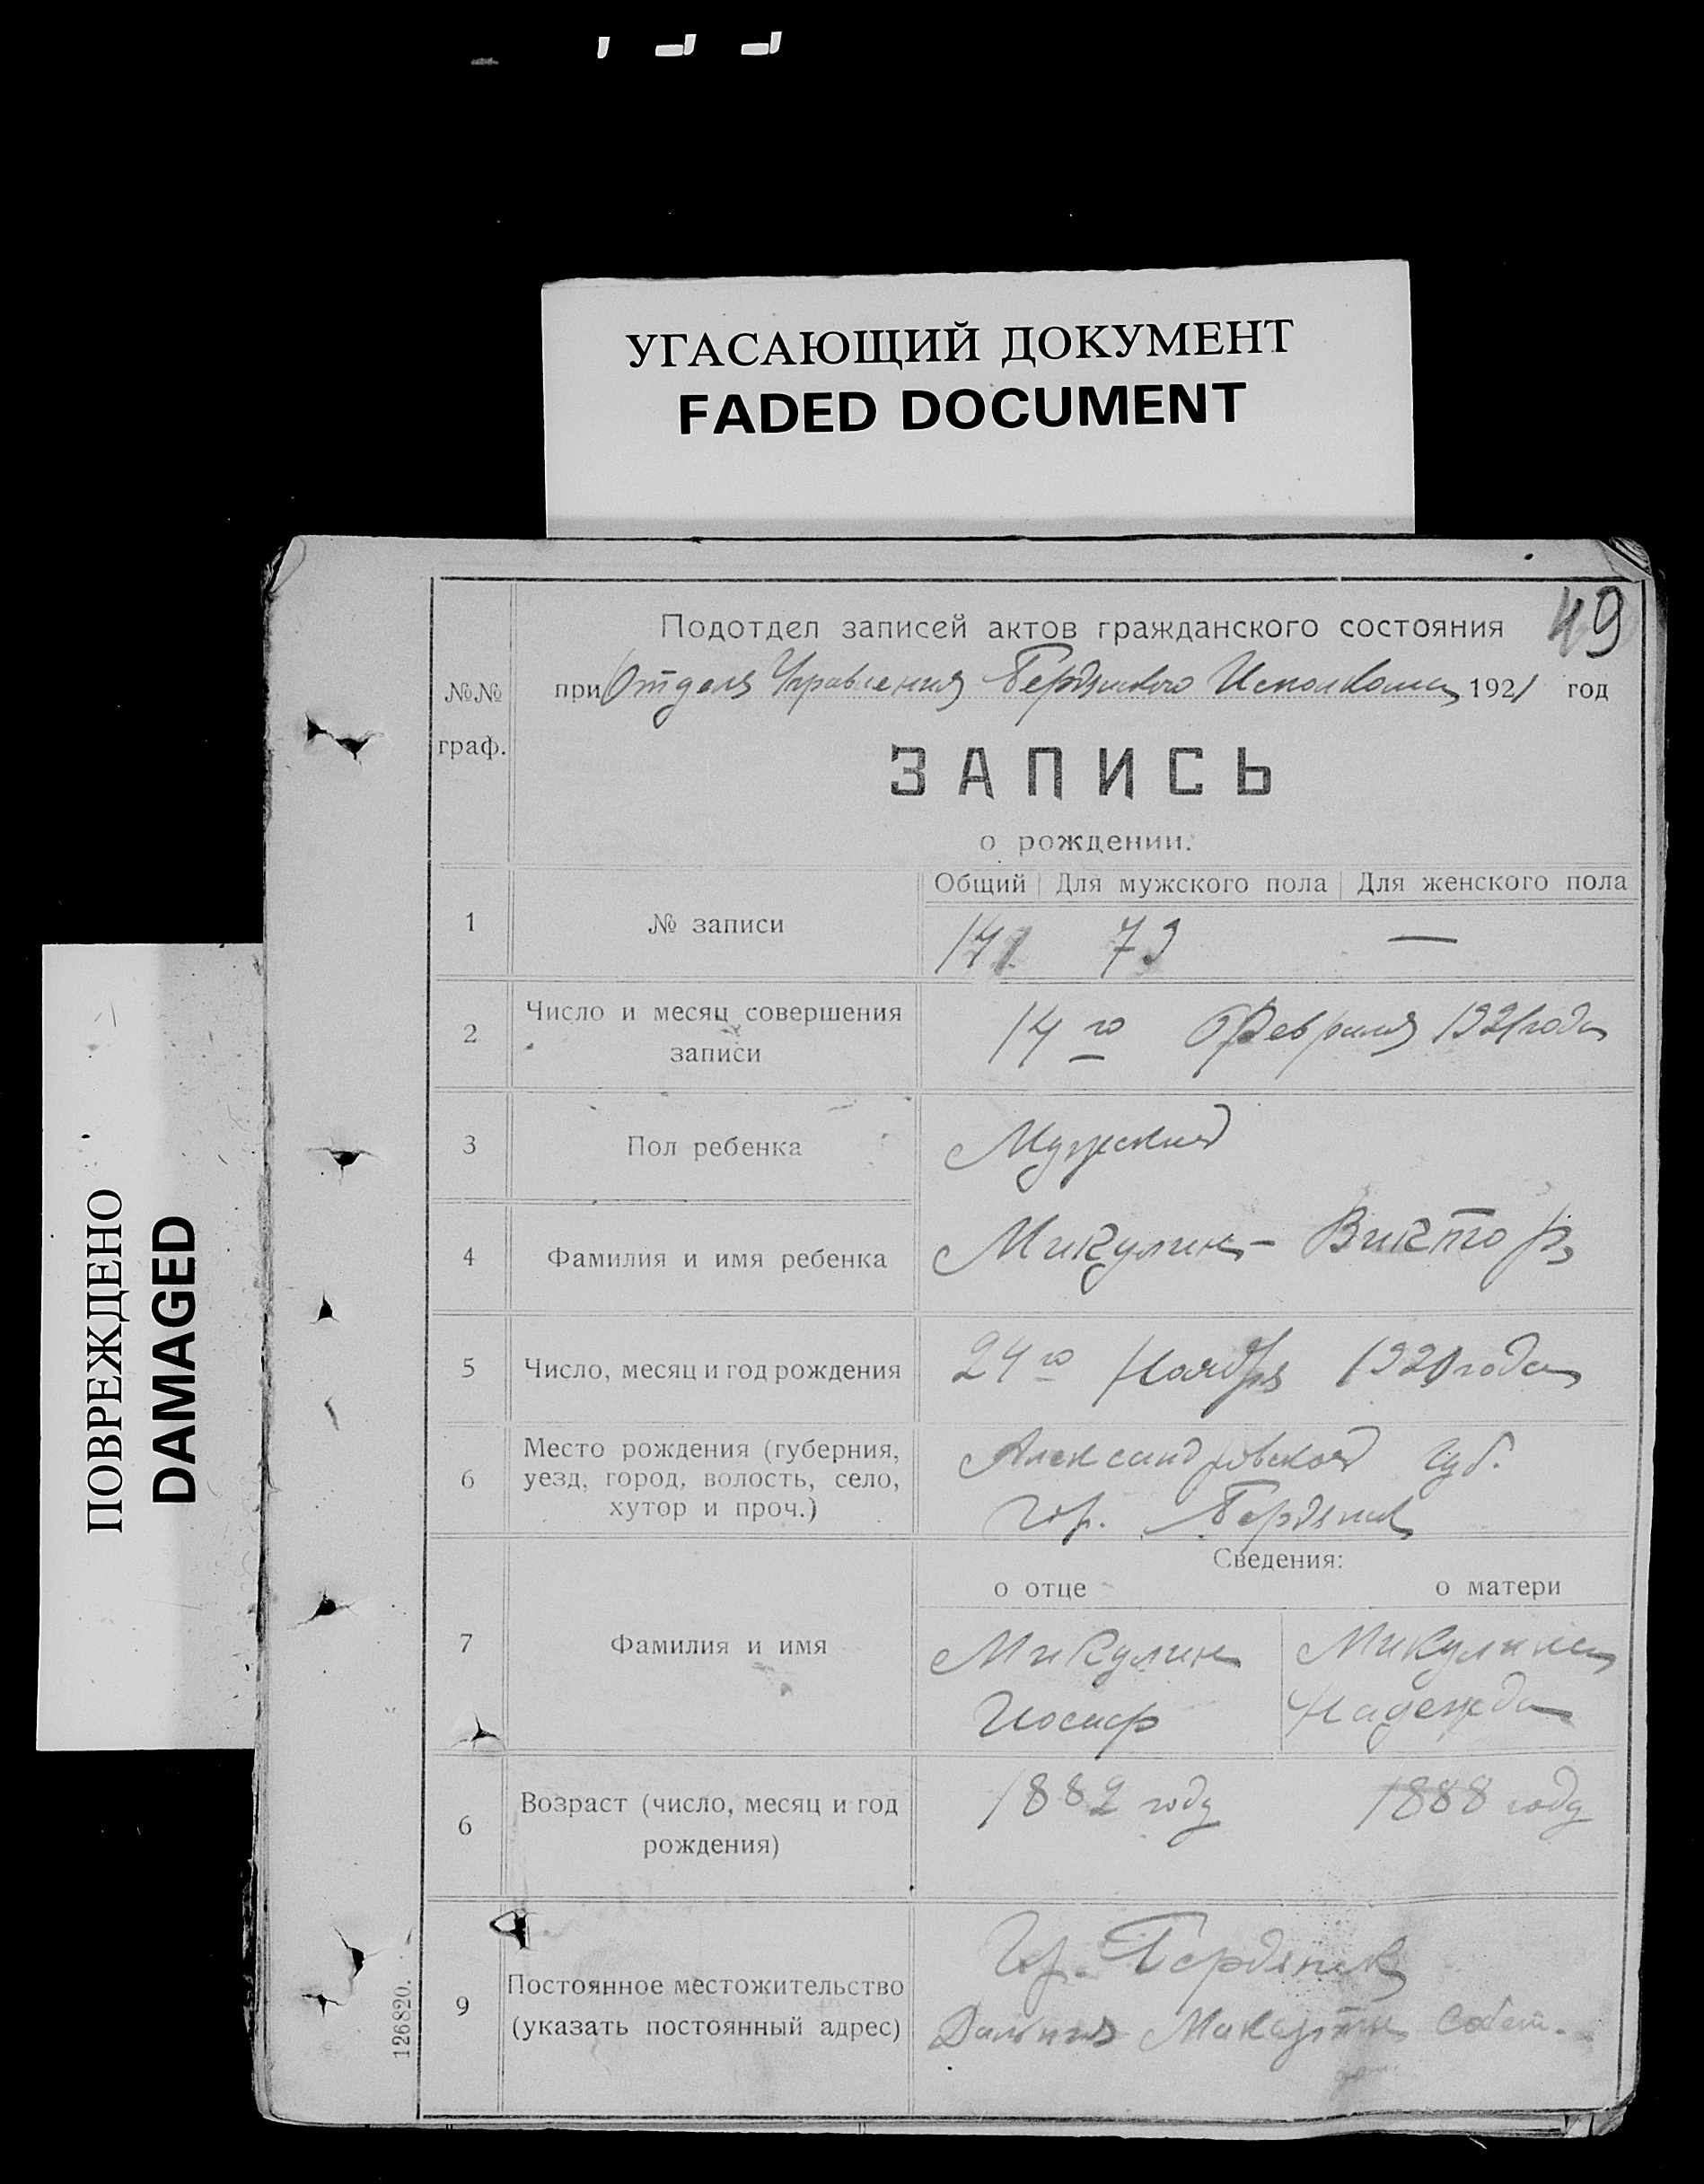 УГАСАЮЩИЙ ДОКУМЕНТ
FADED DOCUMENT
ПОВРЕЖДЕНО
DAMAGED
49
Подотдел записей актов гражданского состояния
№№ граф.
при Отделе Управления Бердянского Исполкома 1921 год
ЗАПИСЬ
о рождении.
Общий Для мужского пола Для женского пола
1 № записи 171 73 —
2 Число и месяц совершения
записи
14го Февраля 1921 года
3 Пол ребенка Мужской
4 Фамилия и имя ребенка Микулин - Виктор
5 Число, месяц и год рождения 24го Ноября 1920 года
6 Место рождения (губерния,
уезд, город, волость, село,
хутор и проч.)
Александровской губ.
гор. Бердянск
Сведения:
о отце о матери
7 Фамилия и имя
Микулин Микулина
Иосиф Надежда
6 Возраст (число, месяц и год
рождения)
1882 году 1888 году
9 Постоянное местожительство
(указать постоянный адрес)
Гр. Бердянск
Дальния собст.
126820.